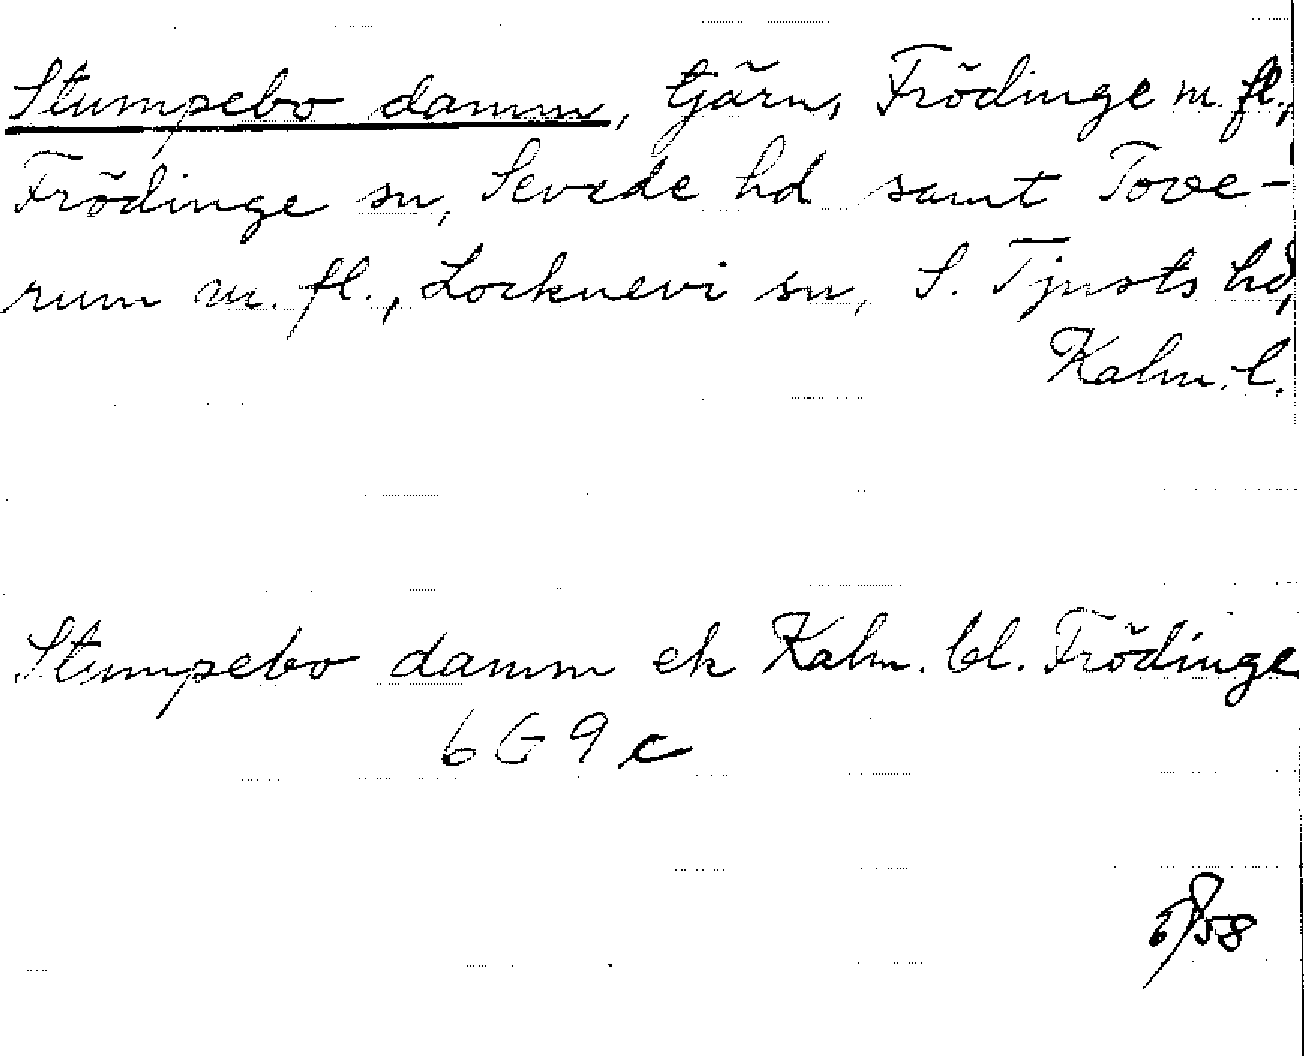 Stumpebo damm, tjärn, Frödinge m. fl.,
Frödinge sn, Sevede hd samt Tove-
rum m. fl., Locknevi sn, S. Tjusts hd,
Kalm. l.
Stumpebo damm ek Kalm. bl. Frödinge
6 G 9 c